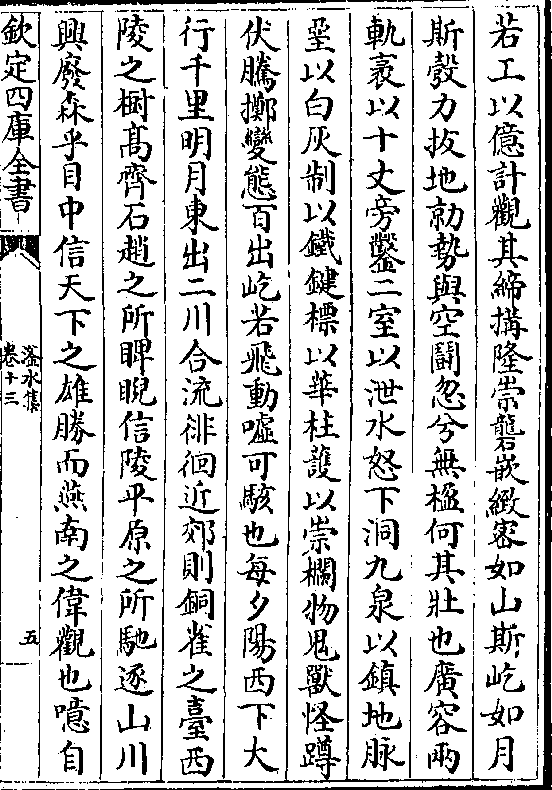 若工以億計觀其締搆隆崇礱嵌緻密如山斯屹如月
斯彀力拔地勍勢與空鬪忽兮無楹何其壯也廣容兩
軌袤以十丈旁鑿二室以泄水怒下洞九泉以鎮地脉
壘以白灰制以鐵鍵標以華柱䕶以崇欄物鬼獸怪蹲
伏騰擲變態百出屹若飛動噓可駭也每夕陽西下大
行千里明月東出二川合流徘徊近郊則銅雀之臺西
陵之樹髙齊石趙之所睥睨信陵平原之所馳逐山川
興廢森乎目中信天下之雄勝而燕南之偉觀也噫自
欽定四庫全書
滏水集
卷十三
五